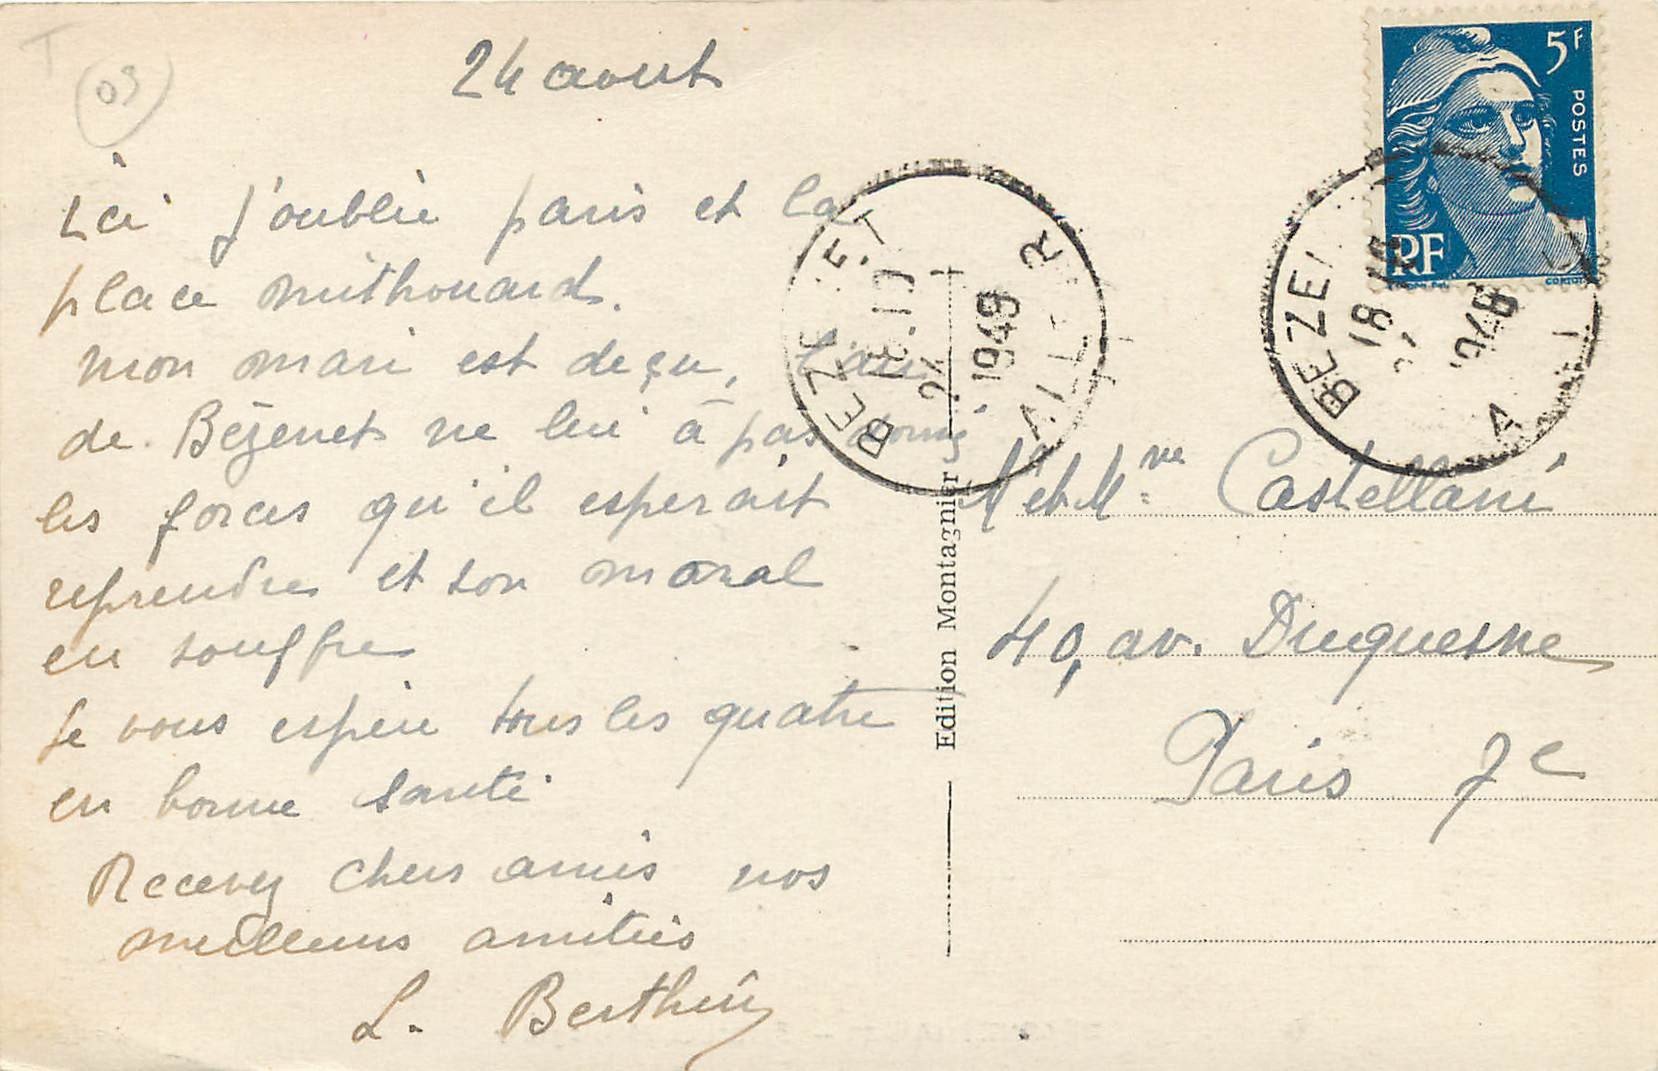 T
03
24 aout
Ici j'oublie paris et la
place mithouard.
mon mari est deçu, l'air
de Bézenet ne lui à pas donné
les forces qu'il esperait
reprendre et son moral
en souffre
Je vous espère tous les quatre
en bonne santé
Recevez chers amis nos
meilleures amitiés
L.
Edition Montagnier
5F
POSTES
RF
BEZENET
18 H
24
1949
ALLIER
BEZE
18
1949
A
Mr et Mme Castellani
40, av. Duquesne
Paris 7e